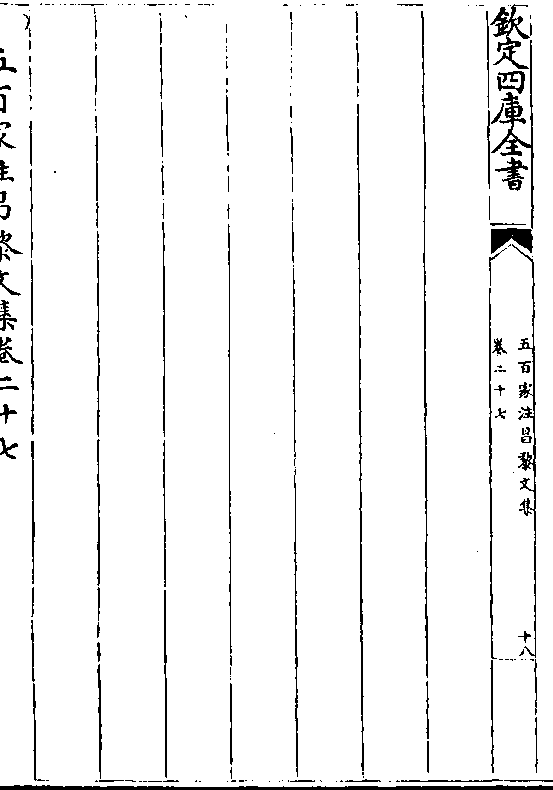 欽定四庫全書
五百家注昌黎文集
卷二十七
十八
五百家注昌黎文集卷二十七